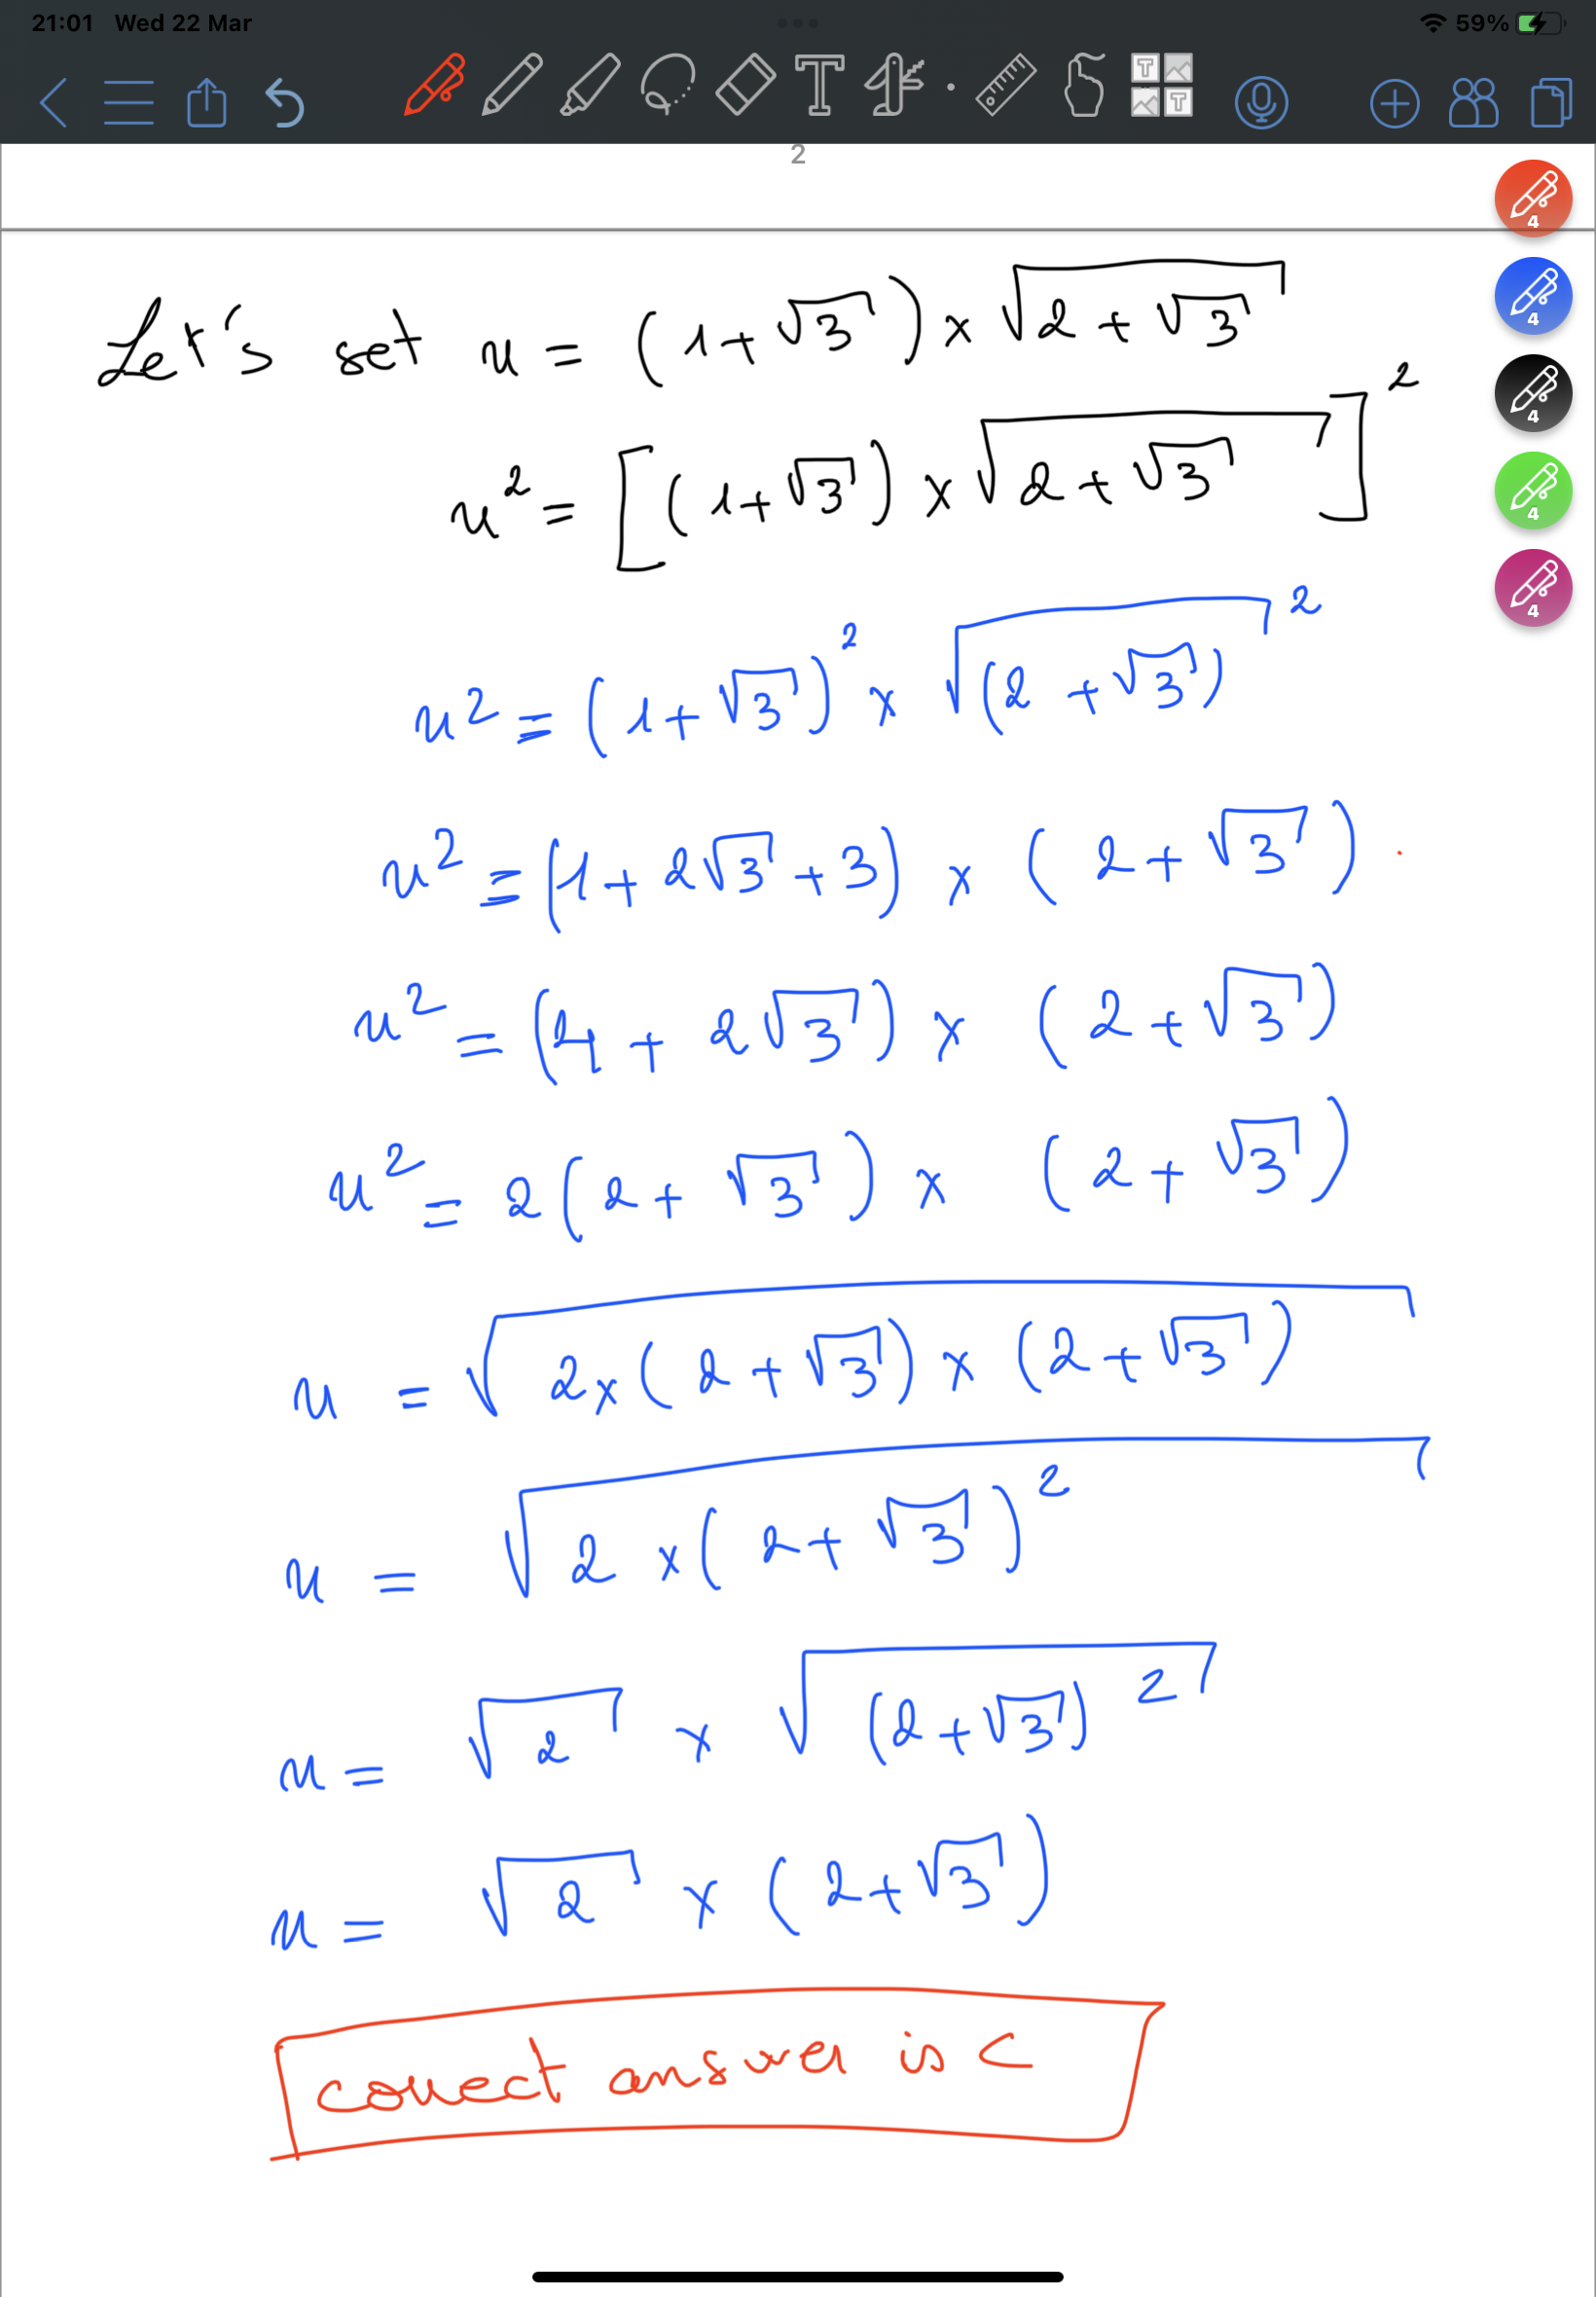 21:01 Wed 22 Mar 59%
T T T
2
4
4
4
4
4
Let's set u = (1+√3) × √(2+√3)
u² = [(1+√3) × √(2+√3)]²
u² = (1+√3)² × √(2+√3)²
u² = (1+2√3+3) × (2+√3)
u² = (4+2√3) × (2+√3)
u² = 2(2+√3) × (2+√3)
u = √(2×(2+√3)×(2+√3))
u = √(2×(2+√3)²)
u = √2 × √((2+√3)²)
u = √2 × (2+√3)
correct answer is C